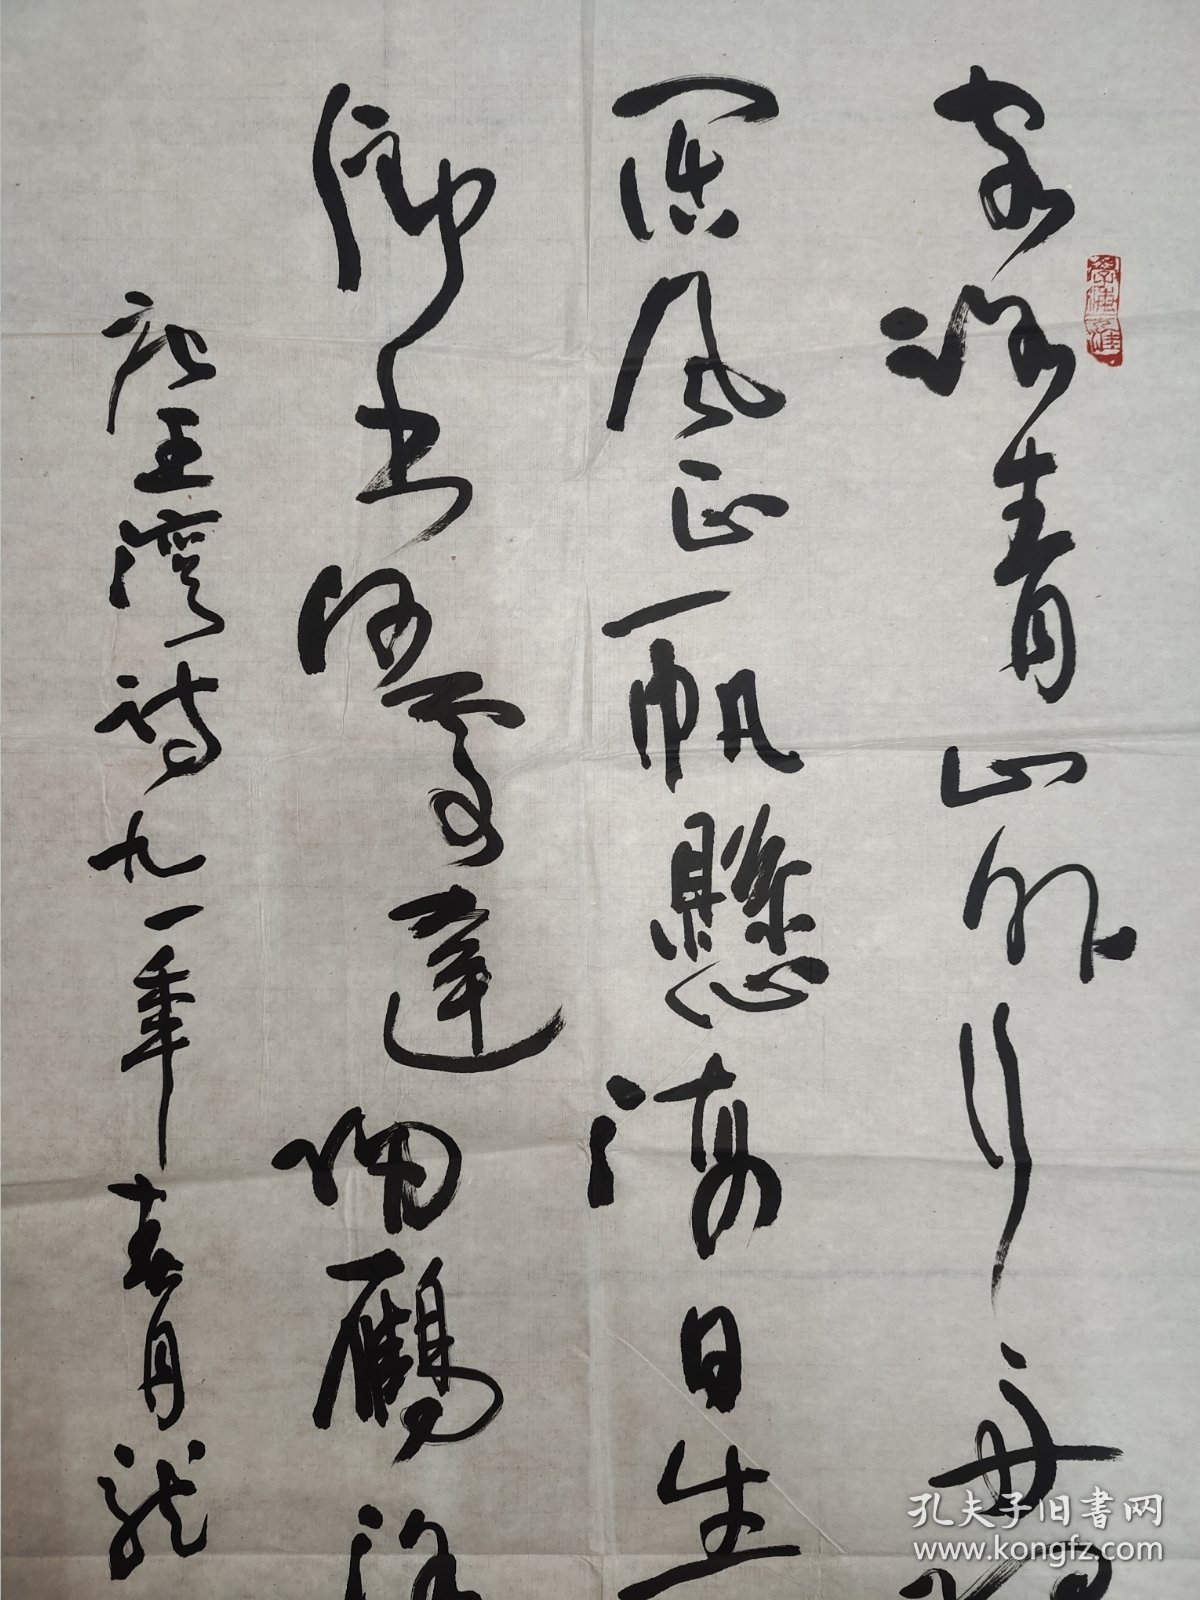 客路青山外行舟
闊風正一帆懸海日生
鄉書何處達歸雁洛
唐王灣詩九一年春月龙
孔夫子旧書网
www.kongfz.com